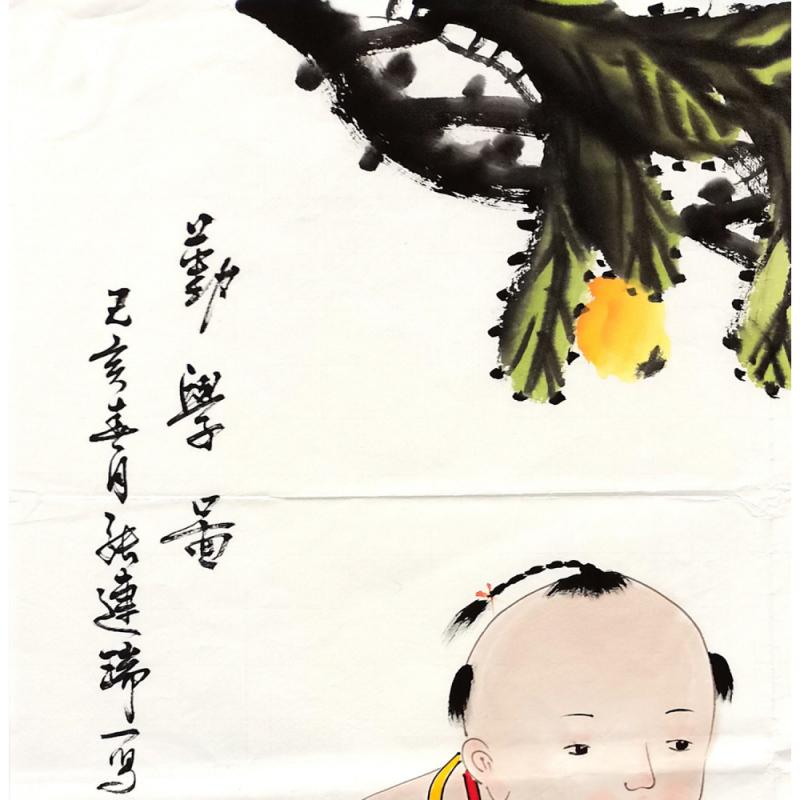 勤學畫
己亥春月張連瑞寫